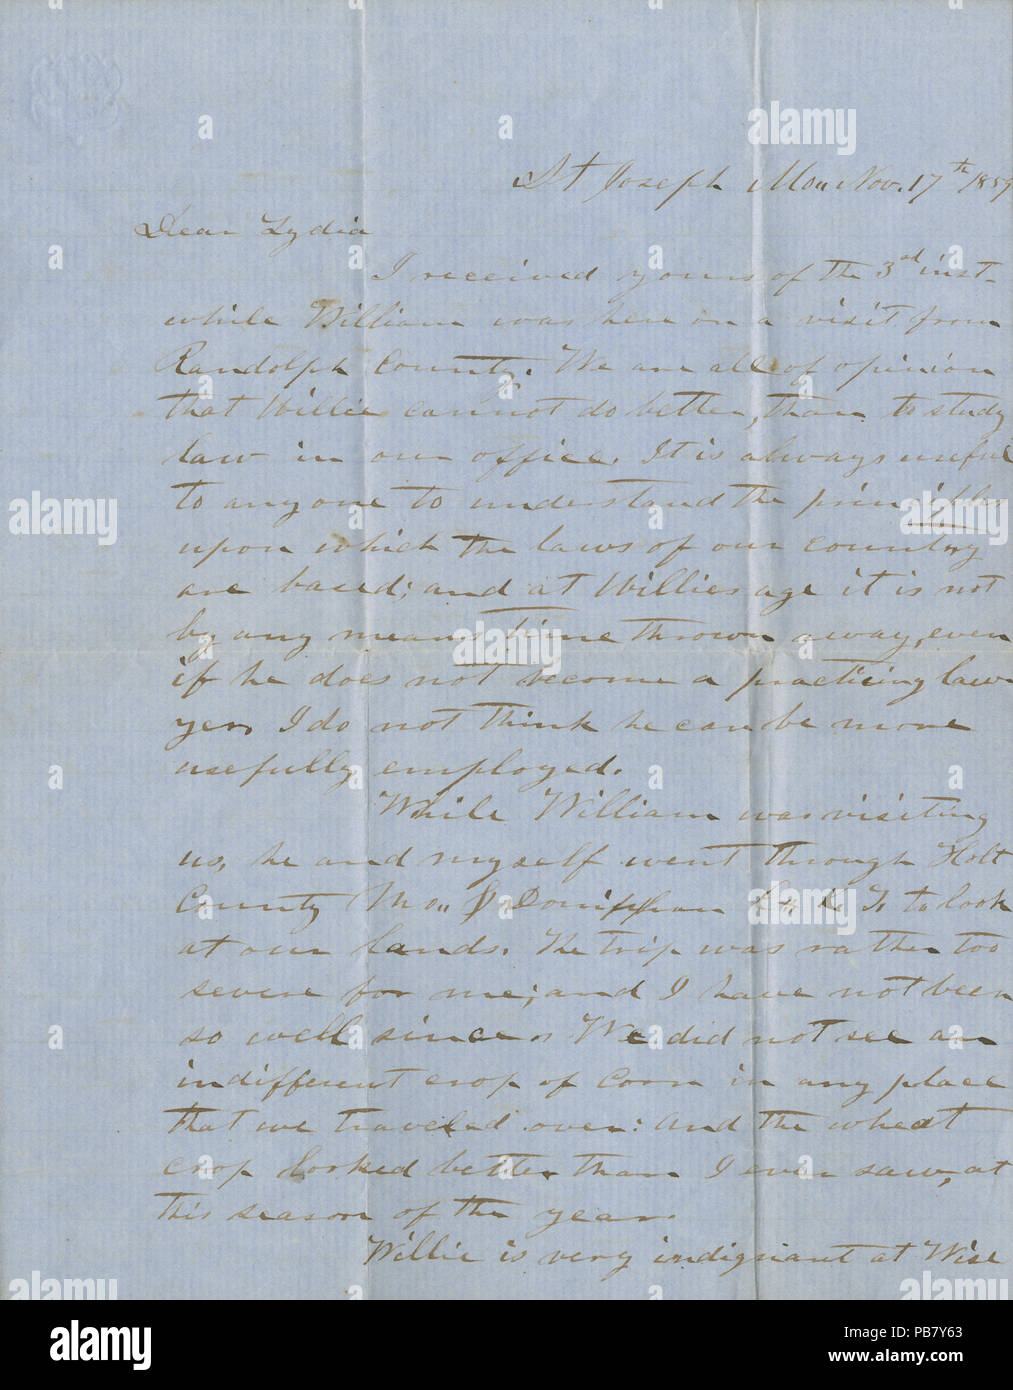 St Joseph Mo,, Nov. 17th 1859
Dear Lydia
I received yours of the 3rd inst-
while William was here on a visit from
Randolph County. We are all of opinion
that Willie cannot do better, than to study
law in our office. It is always useful
to anyone to understand the principles
upon which the laws of our country
are based; and at Willies age it is not
by any means time thrown away, even
if he does not become a practicing law-
yer, I do not think he can be more
usefully employed.
While William was visiting
us, he and myself went through Holt
County Mo,, & Doniphan K. T. to look
at our lands. The trip was rather too
severe for me; and I have not been
so well since. We did not see an
indifferent crop of corn in any place
that we traveled over: and the wheat
crop looked better than I ever saw, at
this season of the year.
Willie is very indignant at Wise
a alamy
alamy
Image ID: PB7Y63
www.alamy.com